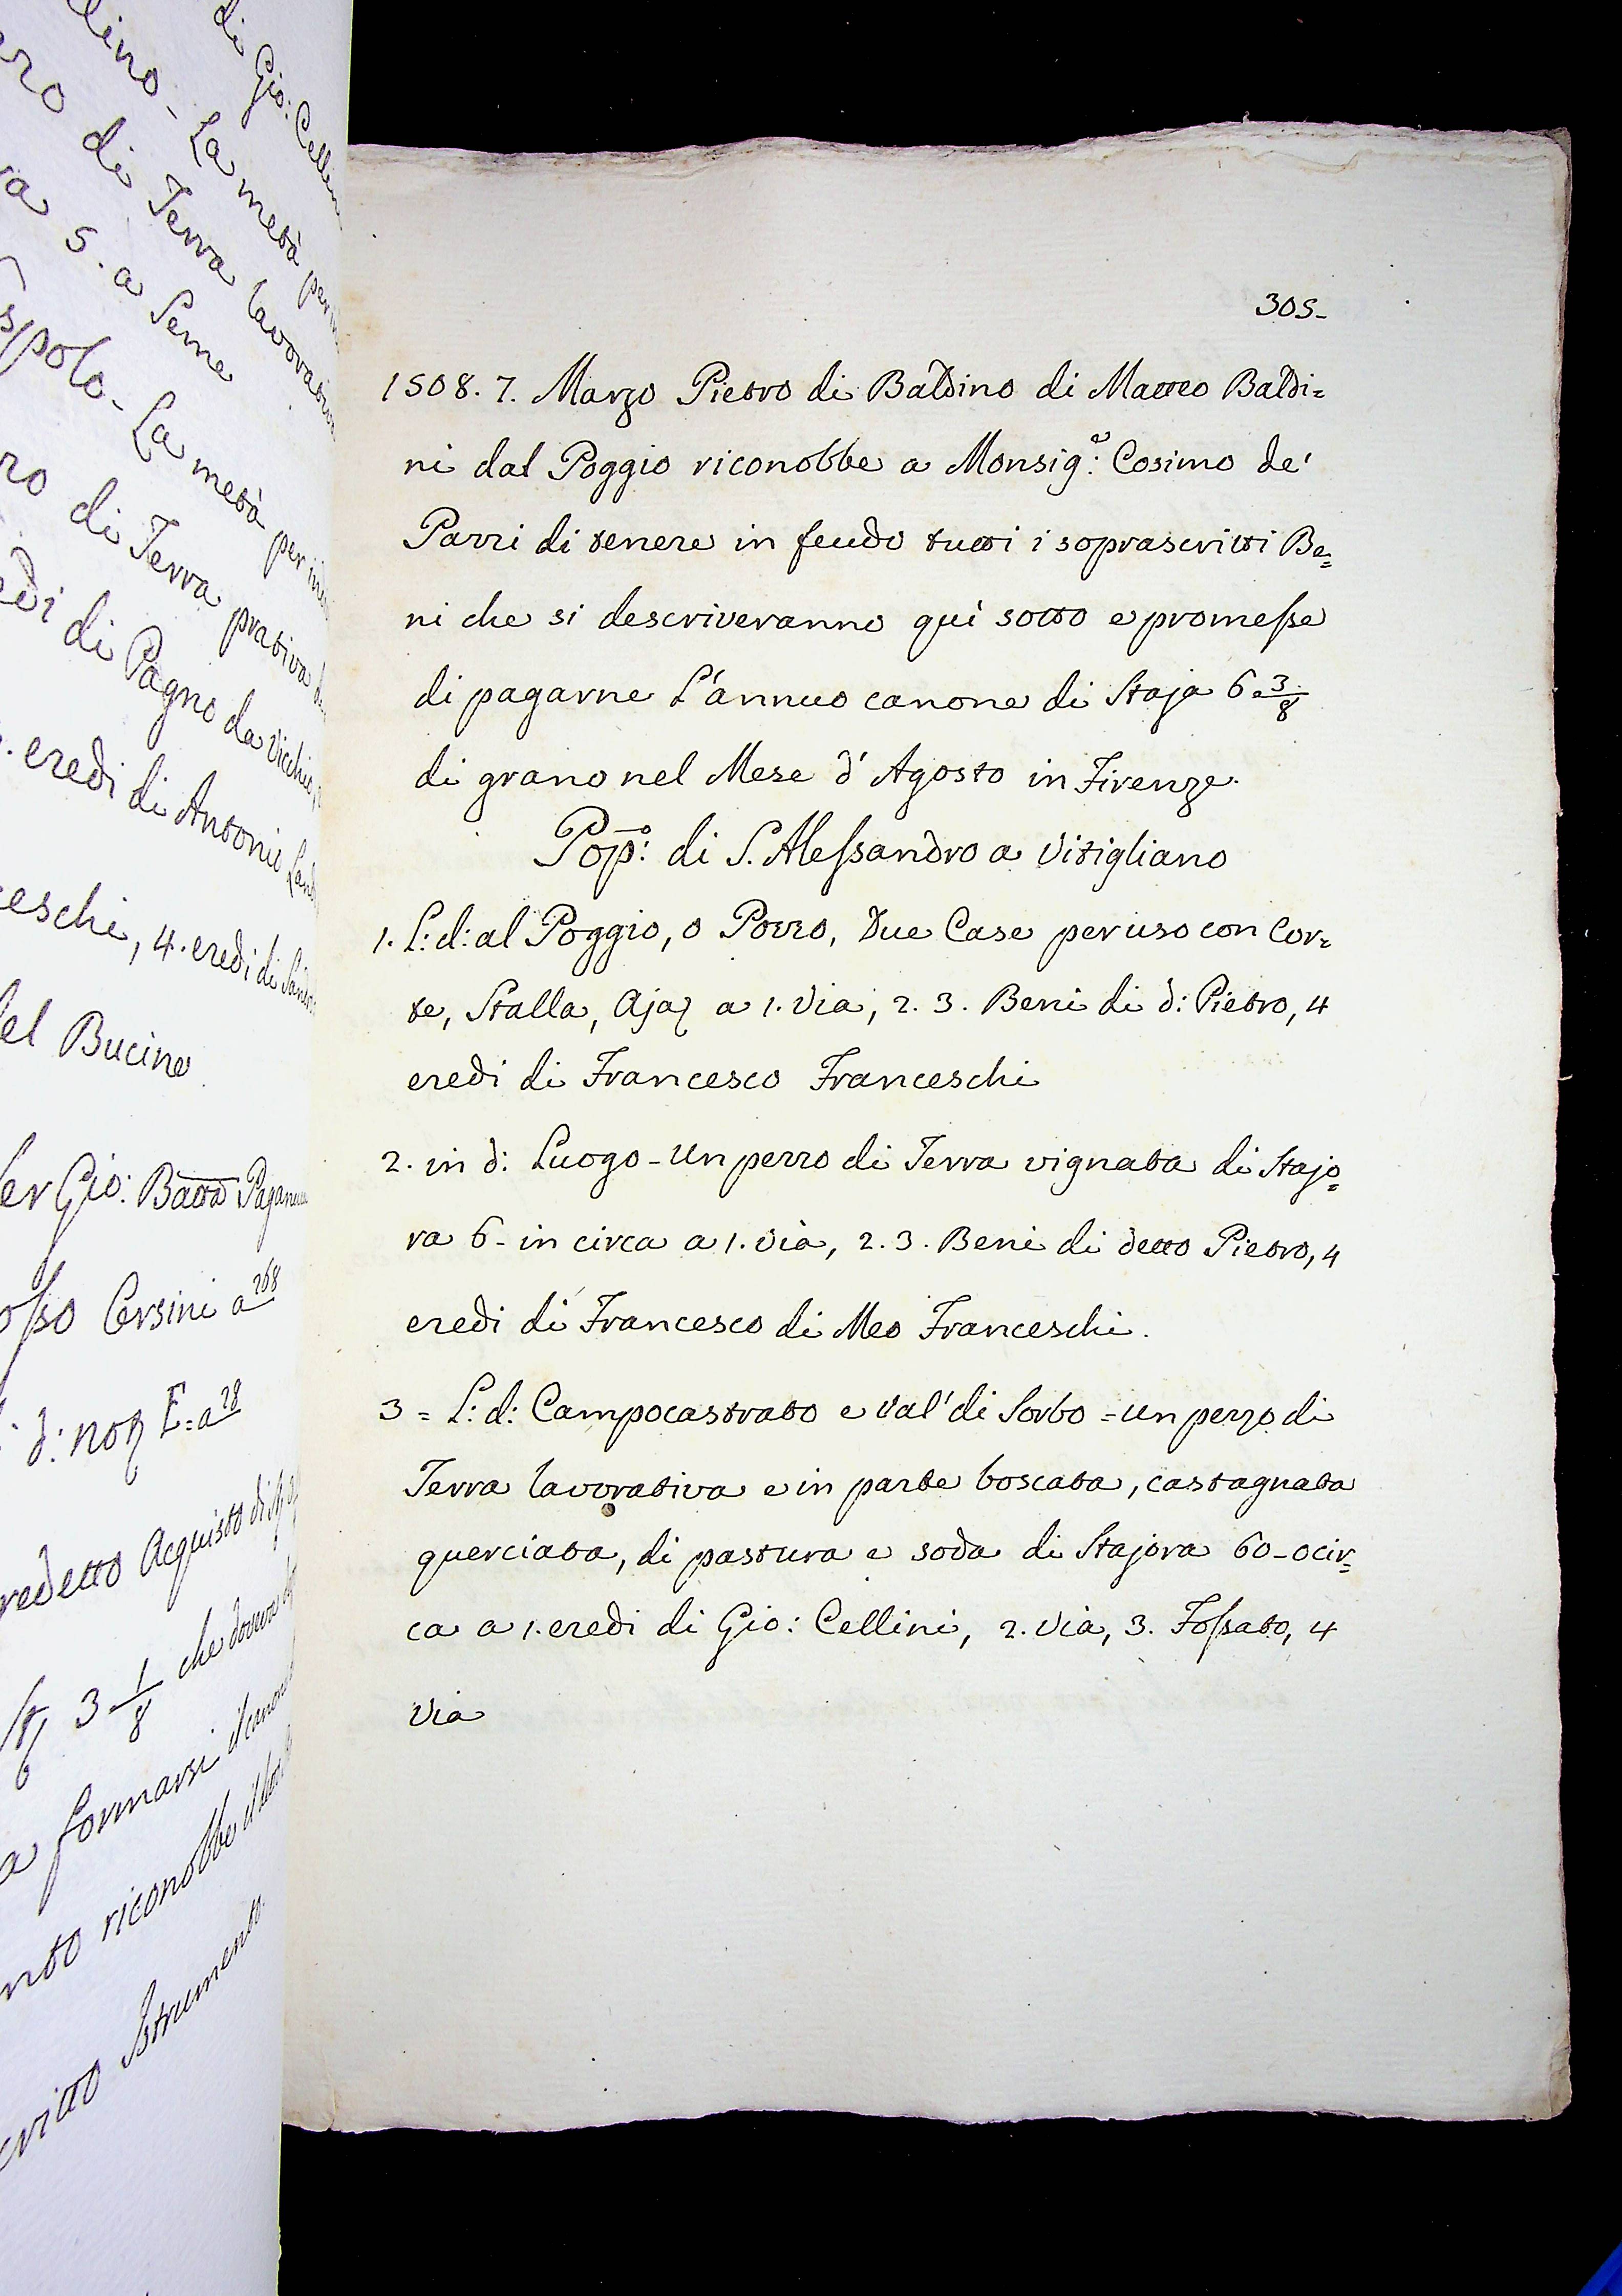 di Gio: Cellin
llino - La metà per
ro di Terra lavorativa
ra 5. a Seme
spolo - La metà per in
ro di Terra prativa
edi di Pagno da Vicchio,
. eredi di Antonio
ceschi, 4. eredi di
del Bucine
er Gio: Batta Pagan
osso Corsini a 268
d: noz E= a 28
redetto Acquisto di
3 1/8 che doveva
a formarsi il canone
nto riconobbe il
critto Istrumento.
305-
1508. 7. Marzo Pietro di Baldino di Matteo Baldi=
ni dal Poggio riconobbe a Monsig.e: Cosimo de'
Pazzi di tenere in feudo tutti i soprascritti Be=
ni che si descriveranno quì sotto e promesse
di pagarne L'annuo canone di Staja 6. 3/8
di grano nel Mese d'Agosto in Firenze.
Pop:o di S. Alessandro a Vitigliano
1. L: d: al Poggio, o Pozzo, Due Case per uso con Cor=
te, Stalla, Ajaz a 1. Via, 2. 3. Beni di d: Pietro, 4
eredi di Francesco Franceschi
2. in d: Luogo - Un pezzo di Terra vignata di Stajo=
ra 6- in circa a 1. Via, 2. 3. Beni di detto Pietro, 4
eredi di Francesco di Meo Franceschi.
3 = L: d: Campocastrato e Val' di Sorbo = un pezzo di
Terra lavorativa e in parte boscata, castagnata
querciata, di pastura e soda di Stajora 60- o cir=
ca a 1. eredi di Gio: Cellini, 2. Via, 3. Fossato, 4
Via